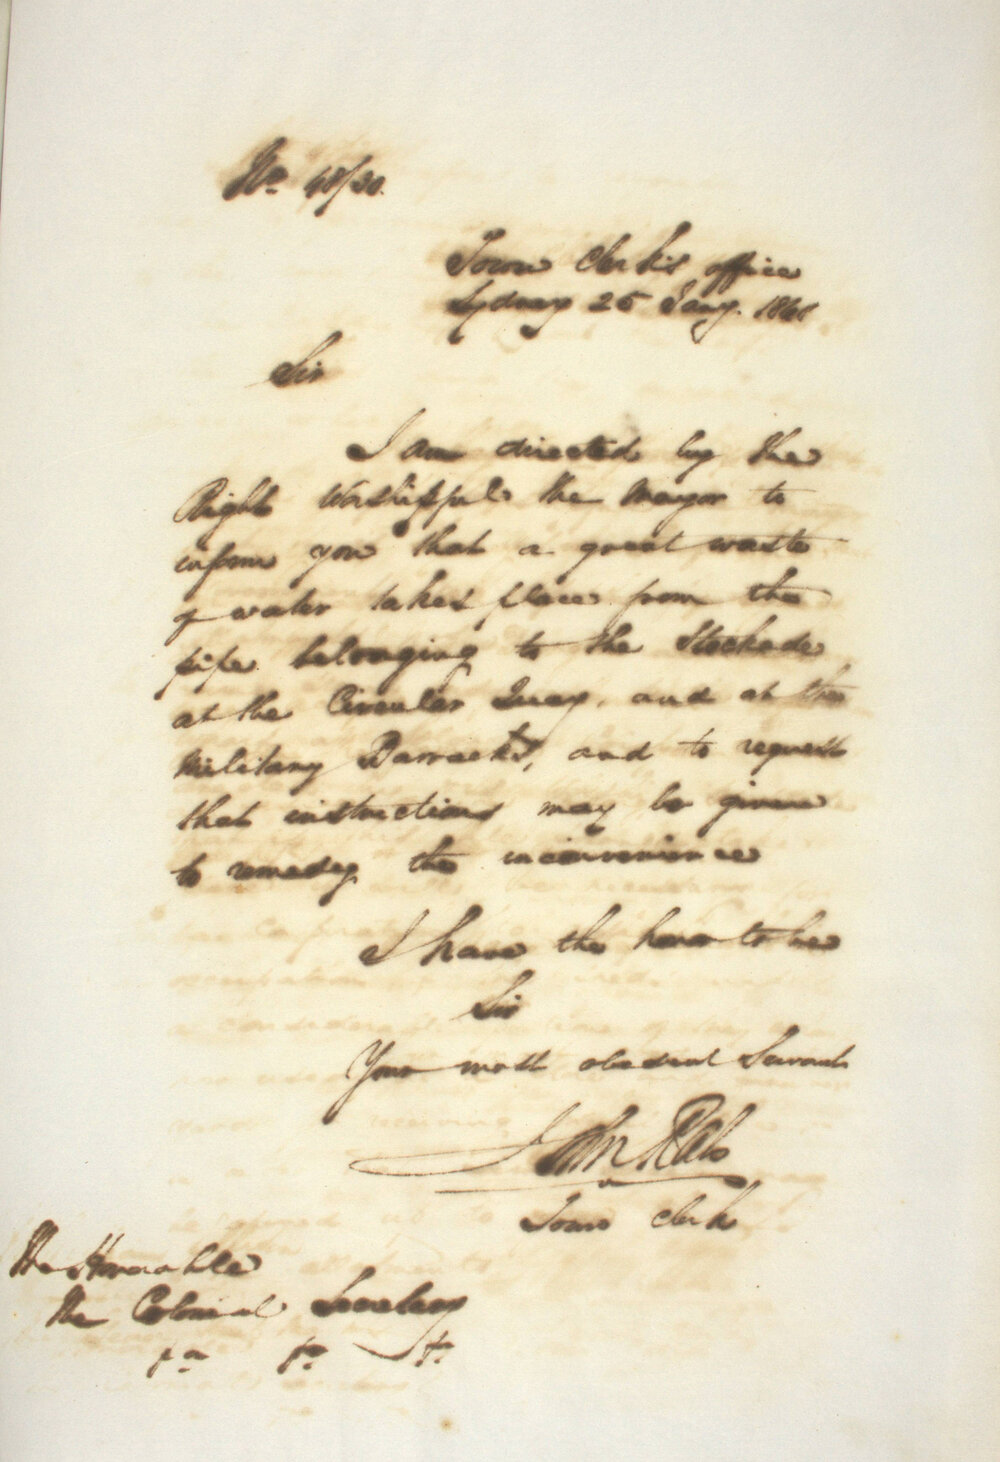 No. 48/30.
Town Clerk's office
Sydney 25 Jany. 1861
Sir
I am directed by the
Right Worshipful the Mayor to
inform you that a great waste
of water takes place from the
pipe belonging to the Stockade
at the Circular Quay, and at the
Military Barracks, and to request
that instructions may be given
to remedy the inconvenience
I have the honor to be
Sir
Your most obedient Servant
John Rae
Town Clerk
The Honorable
The Colonial Secretary